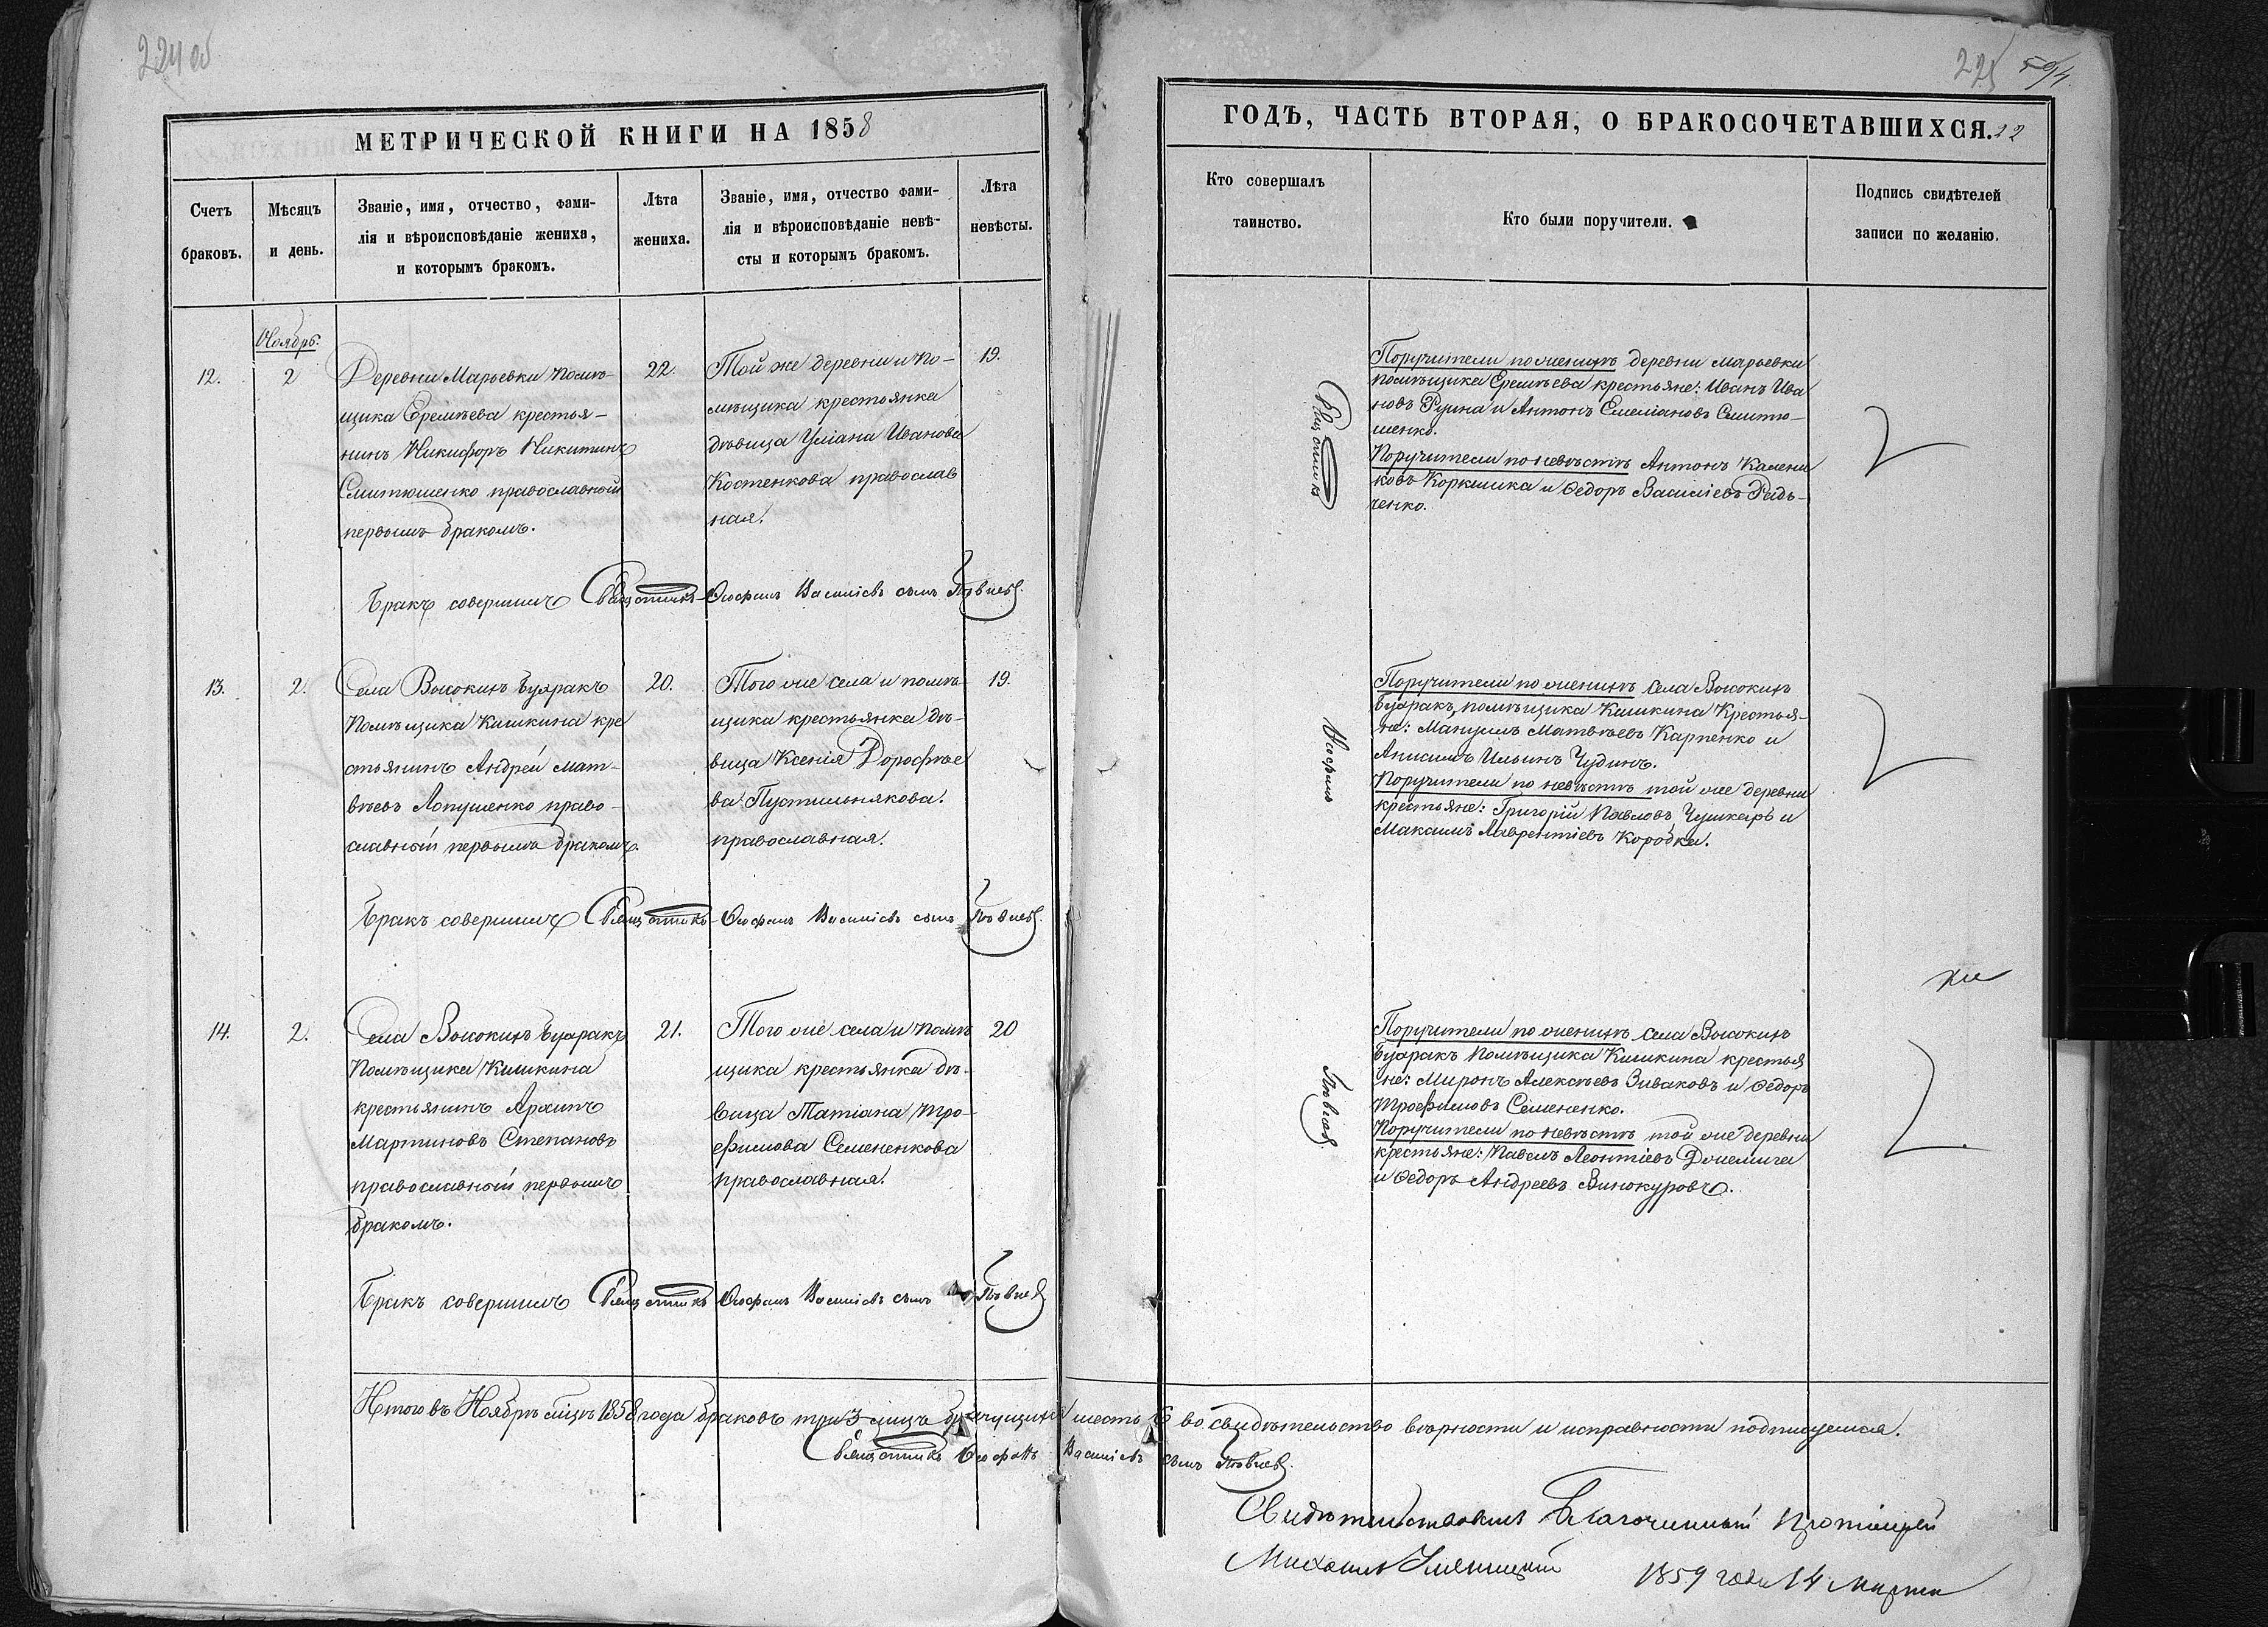 224 об
МЕТРИЧЕСКОЙ КНИГИ НА 1858
Счетъ браковъ.
Мѣсяцъ и день.
Званіе, имя, отчество, фами-
лія и вѣроисповѣданіе жениха,
и которымъ бракомъ.
Лѣта жениха.
Званіе, имя, отчество фами-
лія и вѣроисповѣданіе невѣ-
сты и которымъ бракомъ.
Лѣта невѣсты.
Ноябрь.
12.
2
Деревни Марьевки помѣ-
щика Еремѣева крестья-
нинъ Никифоръ Никитинъ
Смитюшенко православный
первымъ бракомъ.
22.
Той же деревни и по-
мѣщика крестьянка
дѣвица Уліана Иванова
Костенкова православ
ная.
19.
Бракъ совершилъ Священникъ Ѳеофилъ Василіевъ сынъ
13.
2.
Села Высокихъ Буяракъ
Помѣщика Кишкина кре
стьянинъ Андрей Мат-
вѣевъ Лопушенко право-
славный первымъ бракомъ.
20.
Того же села и помѣ
щика крестьянка дѣ-
вица Ксенія Дорофѣе
ва Пустильнякова.
православная.
19.
Бракъ совершилъ Священникъ Ѳеофилъ Василіевъ сынъ
14.
2.
Села Высокихъ Буяракъ
Помѣщика Кишкина
крестьянинъ Архипъ
Мартиновъ Степановъ
православный первымъ
бракомъ.
21.
Того же села и помѣ
щика крестьянка дѣ-
вица Татіана Тро-
фимова Семененкова
православная.
20
Бракъ совершилъ Священникъ Ѳеофилъ Василіевъ сынъ
225 594
ГОДЪ, ЧАСТЬ ВТОРАЯ, О БРАКОСОЧЕТАВШИХСЯ. 22
Кто совершалъ
таинство.
Кто были поручители.
Подпись свидѣтелей
записи по желанію.
Поручители по женихѣ деревни Марьевки
помѣщика Еремѣева крестьяне: Иванъ Ива
новъ Руина и Антонъ Емеліановъ Смитю-
шенко.
Поручители по невѣстѣ Антонъ Калени
ковъ Коркишка и Ѳедоръ Василіевъ Рыдь-
ченко.
Священникъ
Поручители по женихѣ села Высокихъ
Буяракъ, помѣщика Кишкина Крестья-
не: Мануилъ Матвѣевъ Карпенко и
Анисимъ Ильинъ Чудинъ.
Поручители по невѣстѣ той же деревни
крестьяне: Григорій Павловъ Чушкарь и
Максимъ Лаврентіевъ Коробка.
Ѳеофилъ
Поручители по женихѣ села Высокихъ
Буяракъ Помѣщика Кишкина крестья
не: Миронъ Алексѣевъ Зиваковъ и Ѳедоръ
Трофимовъ Семененко.
Поручители по невѣстѣ той же деревни
крестьяне: Павелъ Леонтіевъ Донемига
и Ѳедоръ Андреевъ Винокуровъ.
Итого въ Ноябрѣ мѣцѣ 1858 года браковъ три 3 лицъ брачущихся шесть 6 во свидѣтельство вѣрности и исправности подписуемся.
Священникъ Ѳеофилъ Василіевъ сынъ
Свидѣтельствовалъ Благочинный Протоіерей
Михаилъ
1859 года 14 Марта